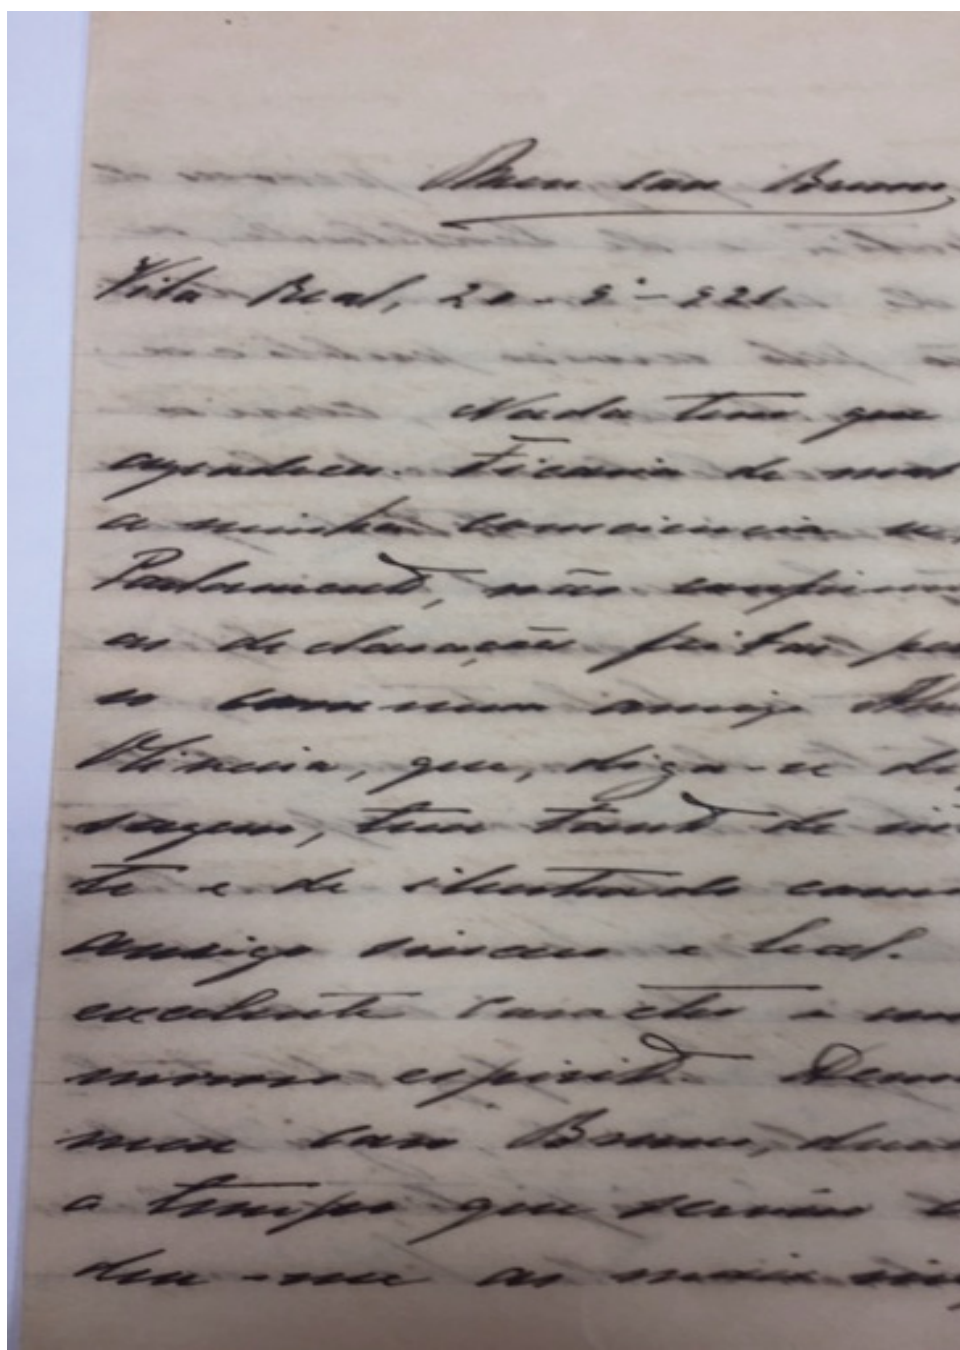 Meu caro Bruno
Vila Real, 20-8º-921
Nada tem que
agradecer. Ficaria de mal
a minha consciencia
Parlamento, não
as declarações feitas
o commum amigo
Oliveira, que, diga-se de
sagem, tem tanto de
te e de ilustrado como
amigo sincero e leal.
excelente caracter e um
espirito.
meu caro Bruno,
a tempo que
deu-me as mais